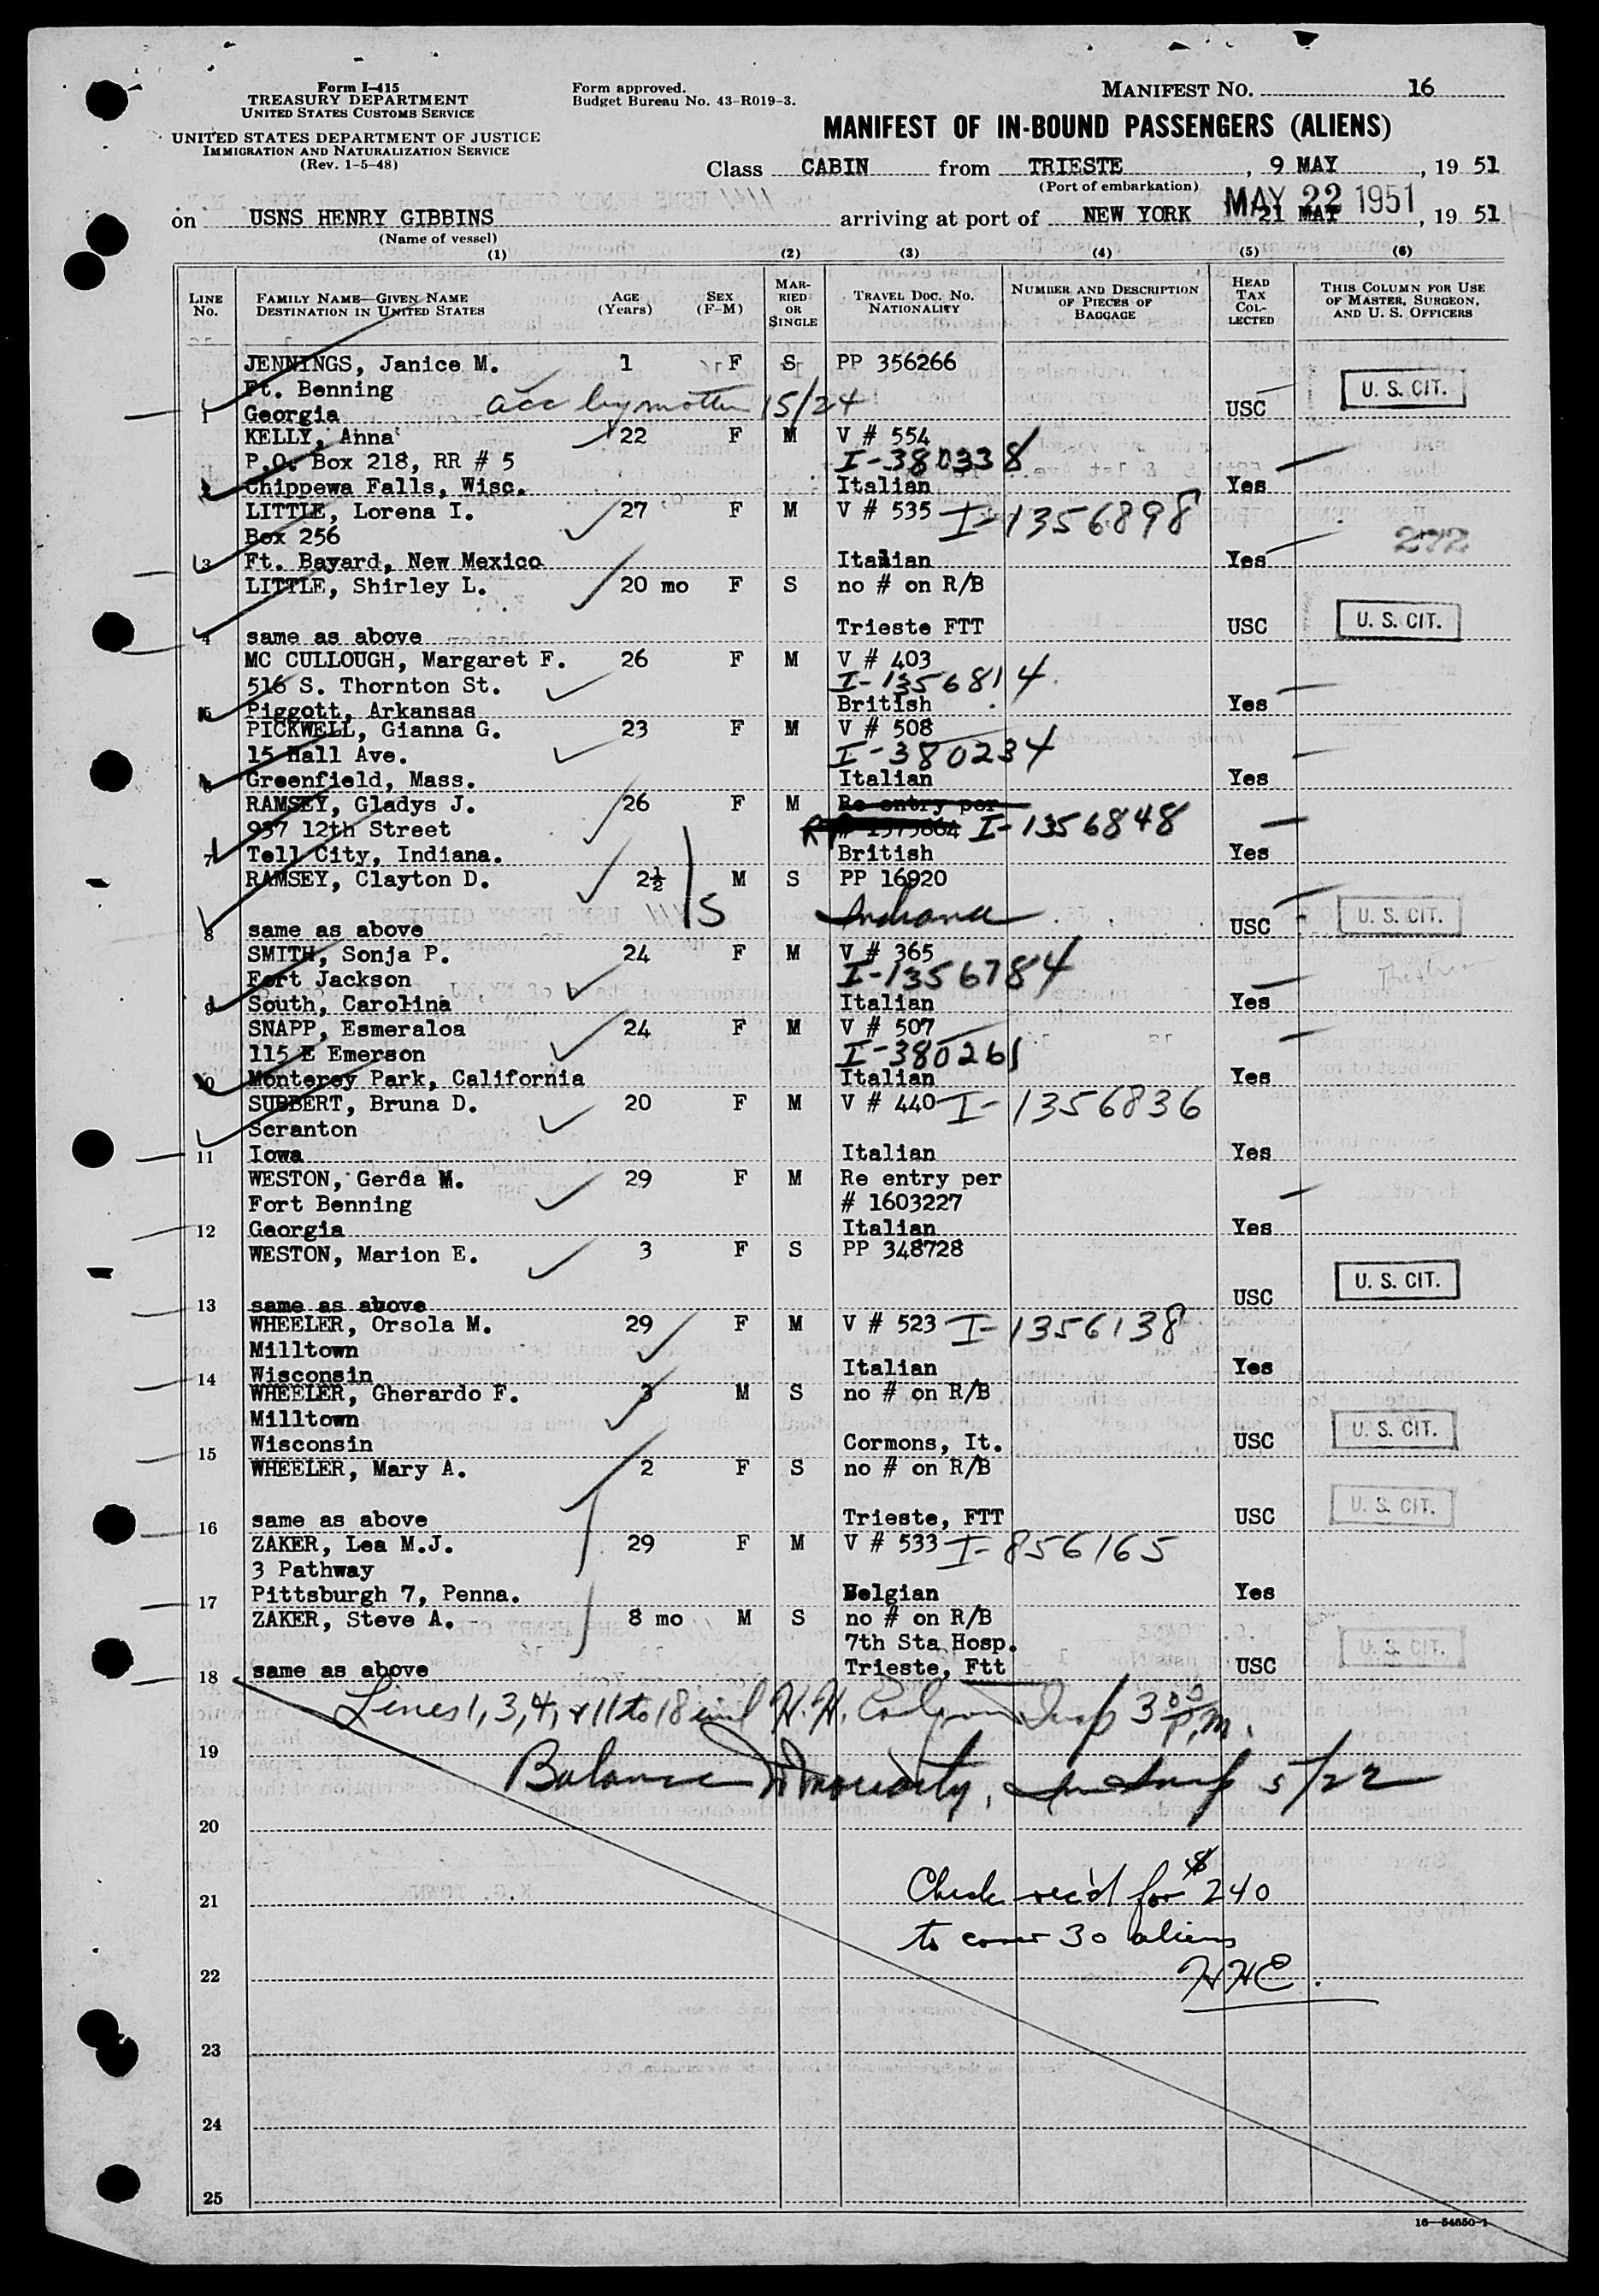 Form I-415
TREASURY DEPARTMENT
UNITED STATES CUSTOMS SERVICE
UNITED STATES DEPARTMENT OF JUSTICE
IMMIGRATION AND NATURALIZATION SERVICE
(Rev. 1-5-48)
Form approved.
Budget Bureau No. 43-R019-3.
MANIFEST NO. 16
MANIFEST OF IN-BOUND PASSENGERS (ALIENS)
Class CABIN from TRIESTE, 9 MAY, 19 51
(Port of embarkation)
MAY 22 1951
on USNS HENRY GIBBINS arriving at port of NEW YORK 21 MAY, 19 51
(Name of vessel)
(1) (2) (3) (4) (5) (6)
LINE No. FAMILY NAME—GIVEN NAME DESTINATION IN UNITED STATES AGE (Years) SEX (F-M) MARRIED OR SINGLE TRAVEL DOC. NO. NATIONALITY NUMBER AND DESCRIPTION OF PIECES OF BAGGAGE HEAD TAX COLLECTED THIS COLUMN FOR USE OF MASTER, SURGEON, AND U. S. OFFICERS
JENNINGS, Janice M. 1 F S PP 356266
Ft. Benning U. S. CIT.
1 Georgia acc by mother 15/24 USC
KELLY, Anna 22 F M V # 554
P.O. Box 218, RR # 5 I-380338
2 Chippewa Falls, Wisc. Italian Yes
LITTLE, Lorena I. 27 F M V # 535 I-1356898
Box 256 272
3 Ft. Bayard, New Mexico Italian Yes
LITTLE, Shirley L. 20 mo F S no # on R/B
4 same as above Trieste FTT USC U. S. CIT.
MC CULLOUGH, Margaret F. 26 F M V # 403
516 S. Thornton St. I-1356814
5 Piggott, Arkansas British Yes
PICKWELL, Gianna G. 23 F M V # 508
15 Hall Ave. I-380234
6 Greenfield, Mass. Italian Yes
RAMSEY, Gladys J. 26 F M Re entry per
937 12th Street RP I-1356848
7 Tell City, Indiana. British Yes
RAMSEY, Clayton D. 2½ M S PP 16920
15 Indiana U. S. CIT.
8 same as above USC
SMITH, Sonja P. 24 F M V # 365
Fort Jackson I-1356784
9 South, Carolina Italian Yes
SNAPP, Esmeraloa 24 F M V # 507
115 E Emerson I-380261
10 Monterey Park, California Italian Yes
SUBBERT, Bruna D. 20 F M V # 440 I-1356836
Scranton
11 Iowa Italian Yes
WESTON, Gerda M. 29 F M Re entry per
Fort Benning # 1603227
12 Georgia Italian Yes
WESTON, Marion E. 3 F S PP 348728
13 same as above USC U. S. CIT.
WHEELER, Orsola M. 29 F M V # 523 I-1356138
Milltown
14 Wisconsin Italian Yes
WHEELER, Gherardo F. 3 M S no # on R/B
Milltown U. S. CIT.
15 Wisconsin Cormons, It. USC
WHEELER, Mary A. 2 F S no # on R/B
16 same as above Trieste, FTT USC U. S. CIT.
ZAKER, Lea M.J. 29 F M V # 533 I-856165
3 Pathway
17 Pittsburgh 7, Penna. Belgian Yes
ZAKER, Steve A. 8 mo M S no # on R/B
7th Sta Hosp. U. S. CIT.
18 same as above Trieste, Ftt USC
Lines 1, 3, 4, & 11 to 18 incl H.H. Insp 3 00 P.m.
19
Balance Moriarty, Insp 5/22
20
Check rec'd for $240
21
to cover 30 aliens
22 HHE.
23
24
25
16—54650-1